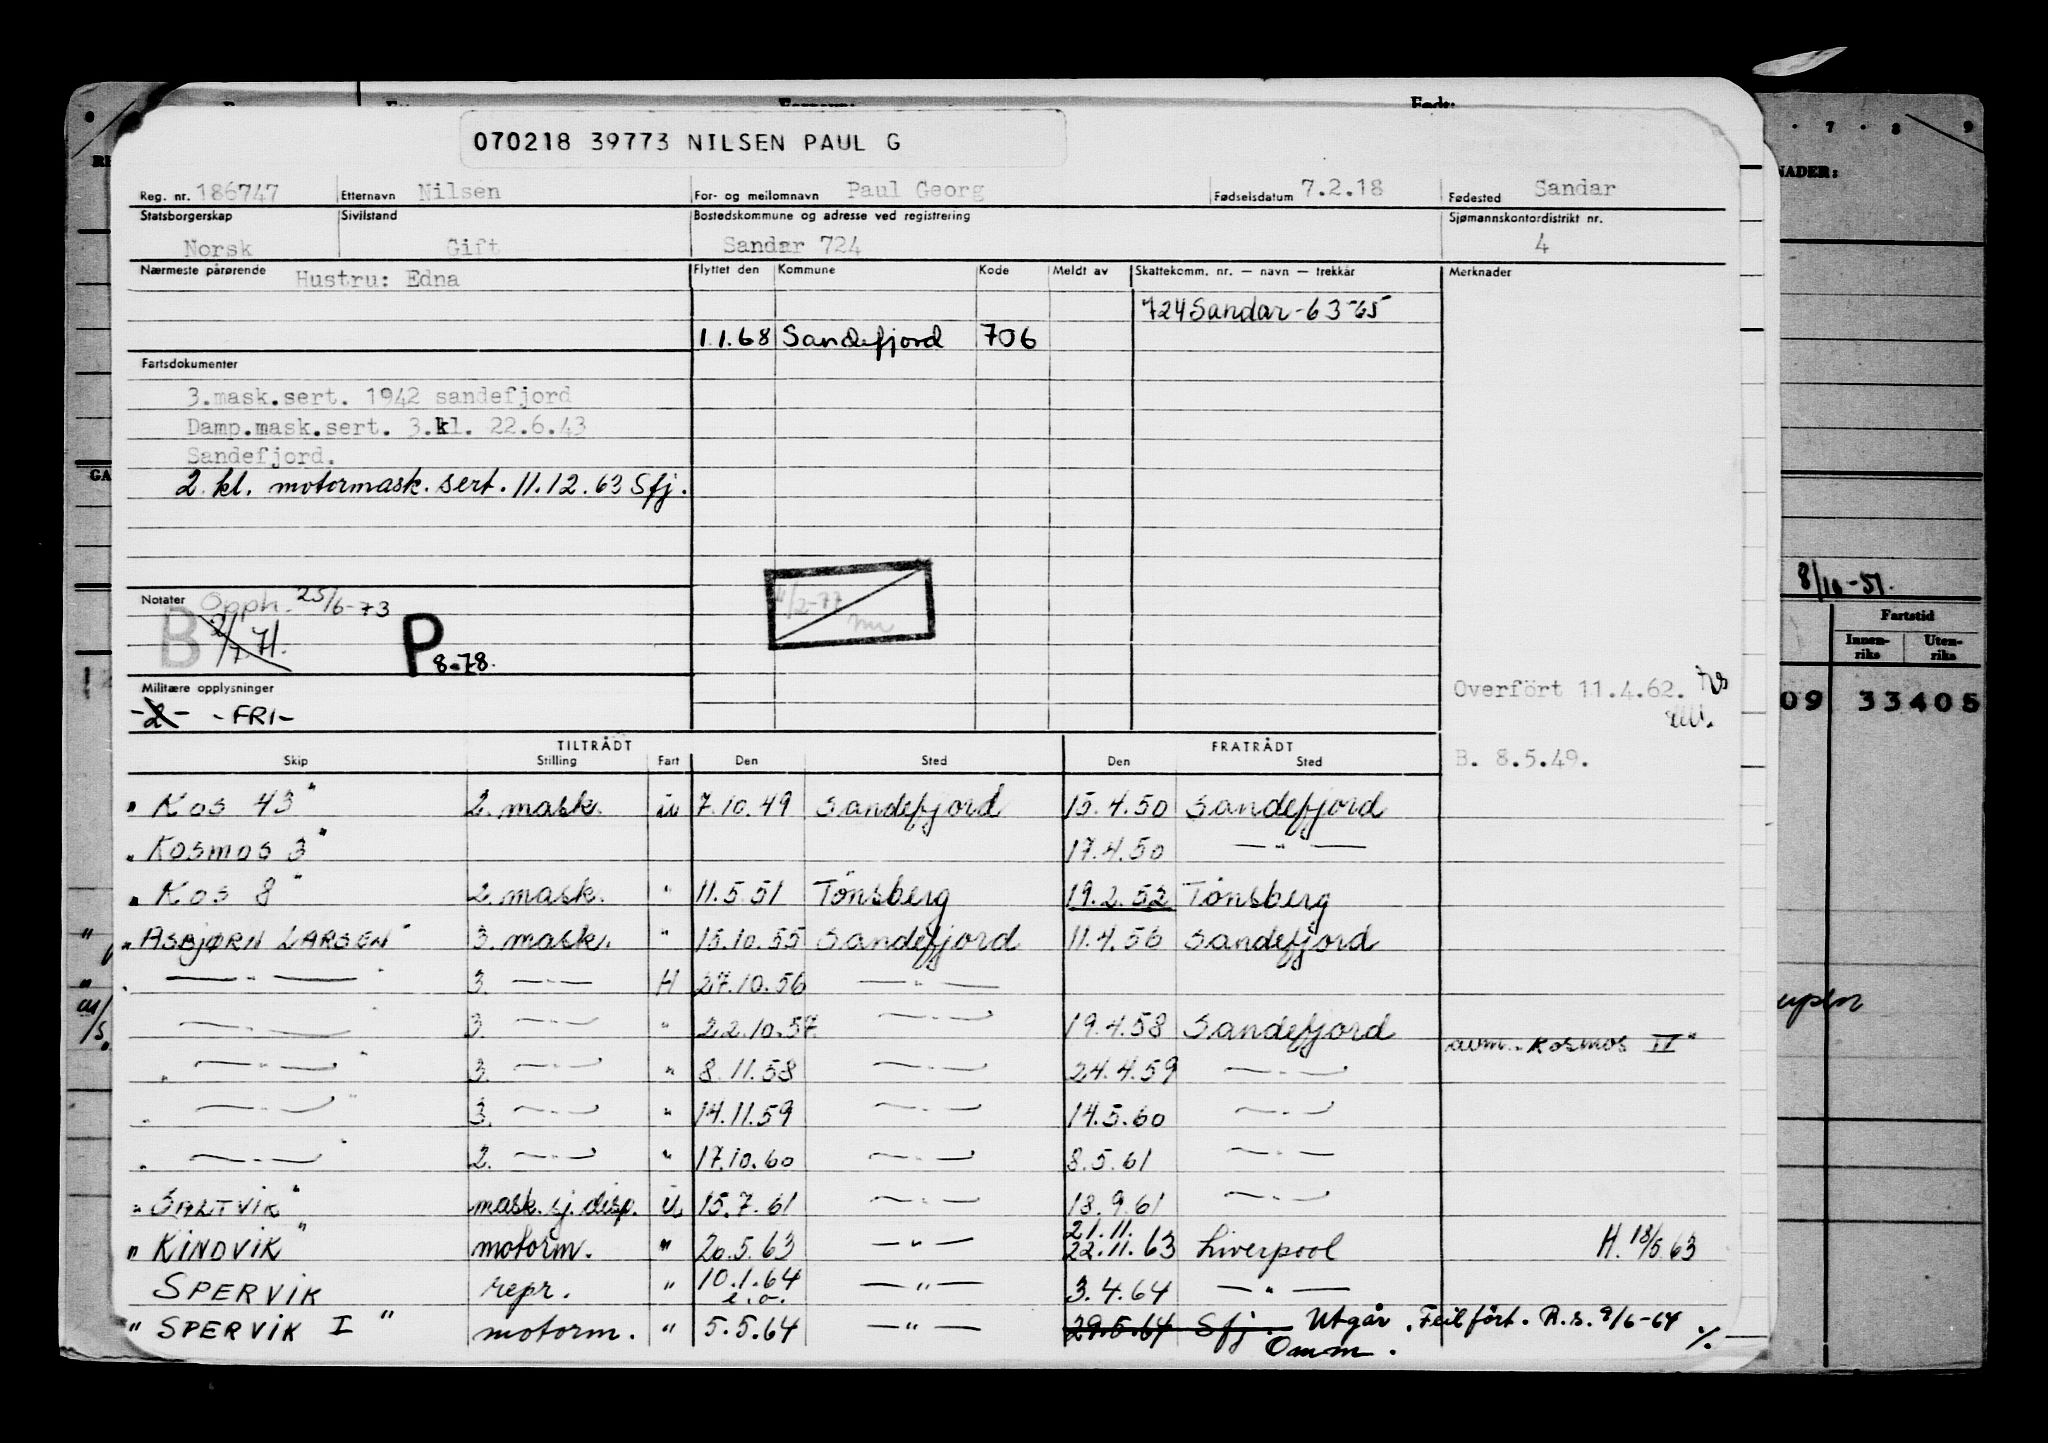 070218 39773 NILSEN PAUL G
Reg. nr. 186747 Etternavn Nilsen For- og mellomnavn Paul Georg Fødselsdatum 7.2.18 Fødested Sandar
Statsborgerskap Sivilstand Bostedskommune og adresse ved registrering Sjømannskontordistrikt nr.
Norsk Gift Sandar 724 4
Nærmeste pårørende Hustru: Edna Flyttet den Kommune Kode Meldt av Skattekomm. nr. — navn — trekkår Merknader
724 Sandar - 63-65
1.1.68 Sandefjord 706
Fartsdokumenter
3.mask.sert. 1942 sandefjord
Damp.mask.sert. 3.kl. 22.6.43
Sandefjord.
2. kl. motormask. sert. 11.12.63 Sfj.
Notater Opph. 25/6-73
B 2/7.71. P 8-78.
4/2-77
Militære opplysninger
-2- -FRI-
Overfört 11.4.62.
TILTRÅDT FRATRÅDT
Skip Stilling Fart Den Sted Den Sted
B. 8.5.49.
" Kos 43 " 2. mask. u 7.10.49 Sandefjord 15.4.50 Sandefjord
" Kosmos 3 " 17.4.50 — " —
" Kos 8 " 2. mask. " 11.5.51 Tönsberg 19.2.52 Tönsberg
" ASBJØRN LARSEN " 3. mask. " 15.10.55 Sandefjord 11.4.56 Sandefjord
" — " — " 3. — " — H 27.10.56 — " —
— " — " 3. — " — " 22.10.57. — " — 19.4.58 Sandefjord
avm. "Kosmos IV"
" — " — " 3. — " — " 8.11.58 — " — 24.4.59 — " —
" — " — " 3. — " — " 14.11.59 — " — 14.5.60 — " —
" — " — " 2. — " — " 17.10.60 — " — 8.5.61 — " —
" SALTVIK " mask. sj. disp. U 15.7.61 — " — 18.9.61 — " —
21.11.
" KINDVIK " motorm. " 20.5.63 — " — 22.11.63 Liverpool H. 18/5.63
SPERVIK repr. " 10.1.64 — " — 3.4.64 — " —
e.o.
" SPERVIK I " motorm. " 5.5.64 — " — 29.5.64 Sfj. Utgår. Feilfört. R.s. 9/6-64 ./.
Omm.
8/10-51.
Fartstid
Innen-riks Uten-riks
09 33405